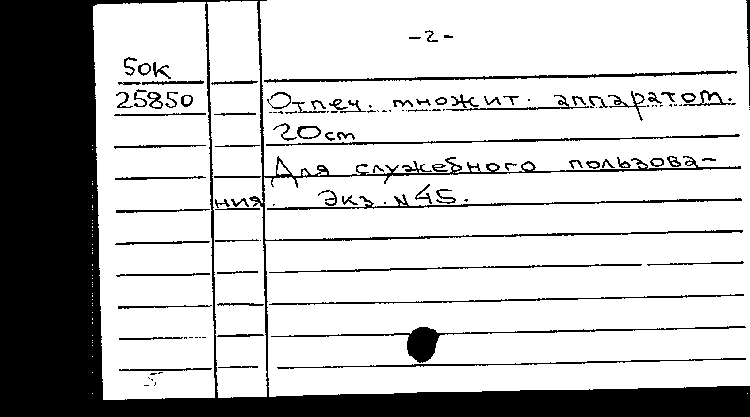 -2-
50к
25850 Отпеч. множит. аппаратом.
20см
Для служебного пользова-
ния. Экз. N 45.